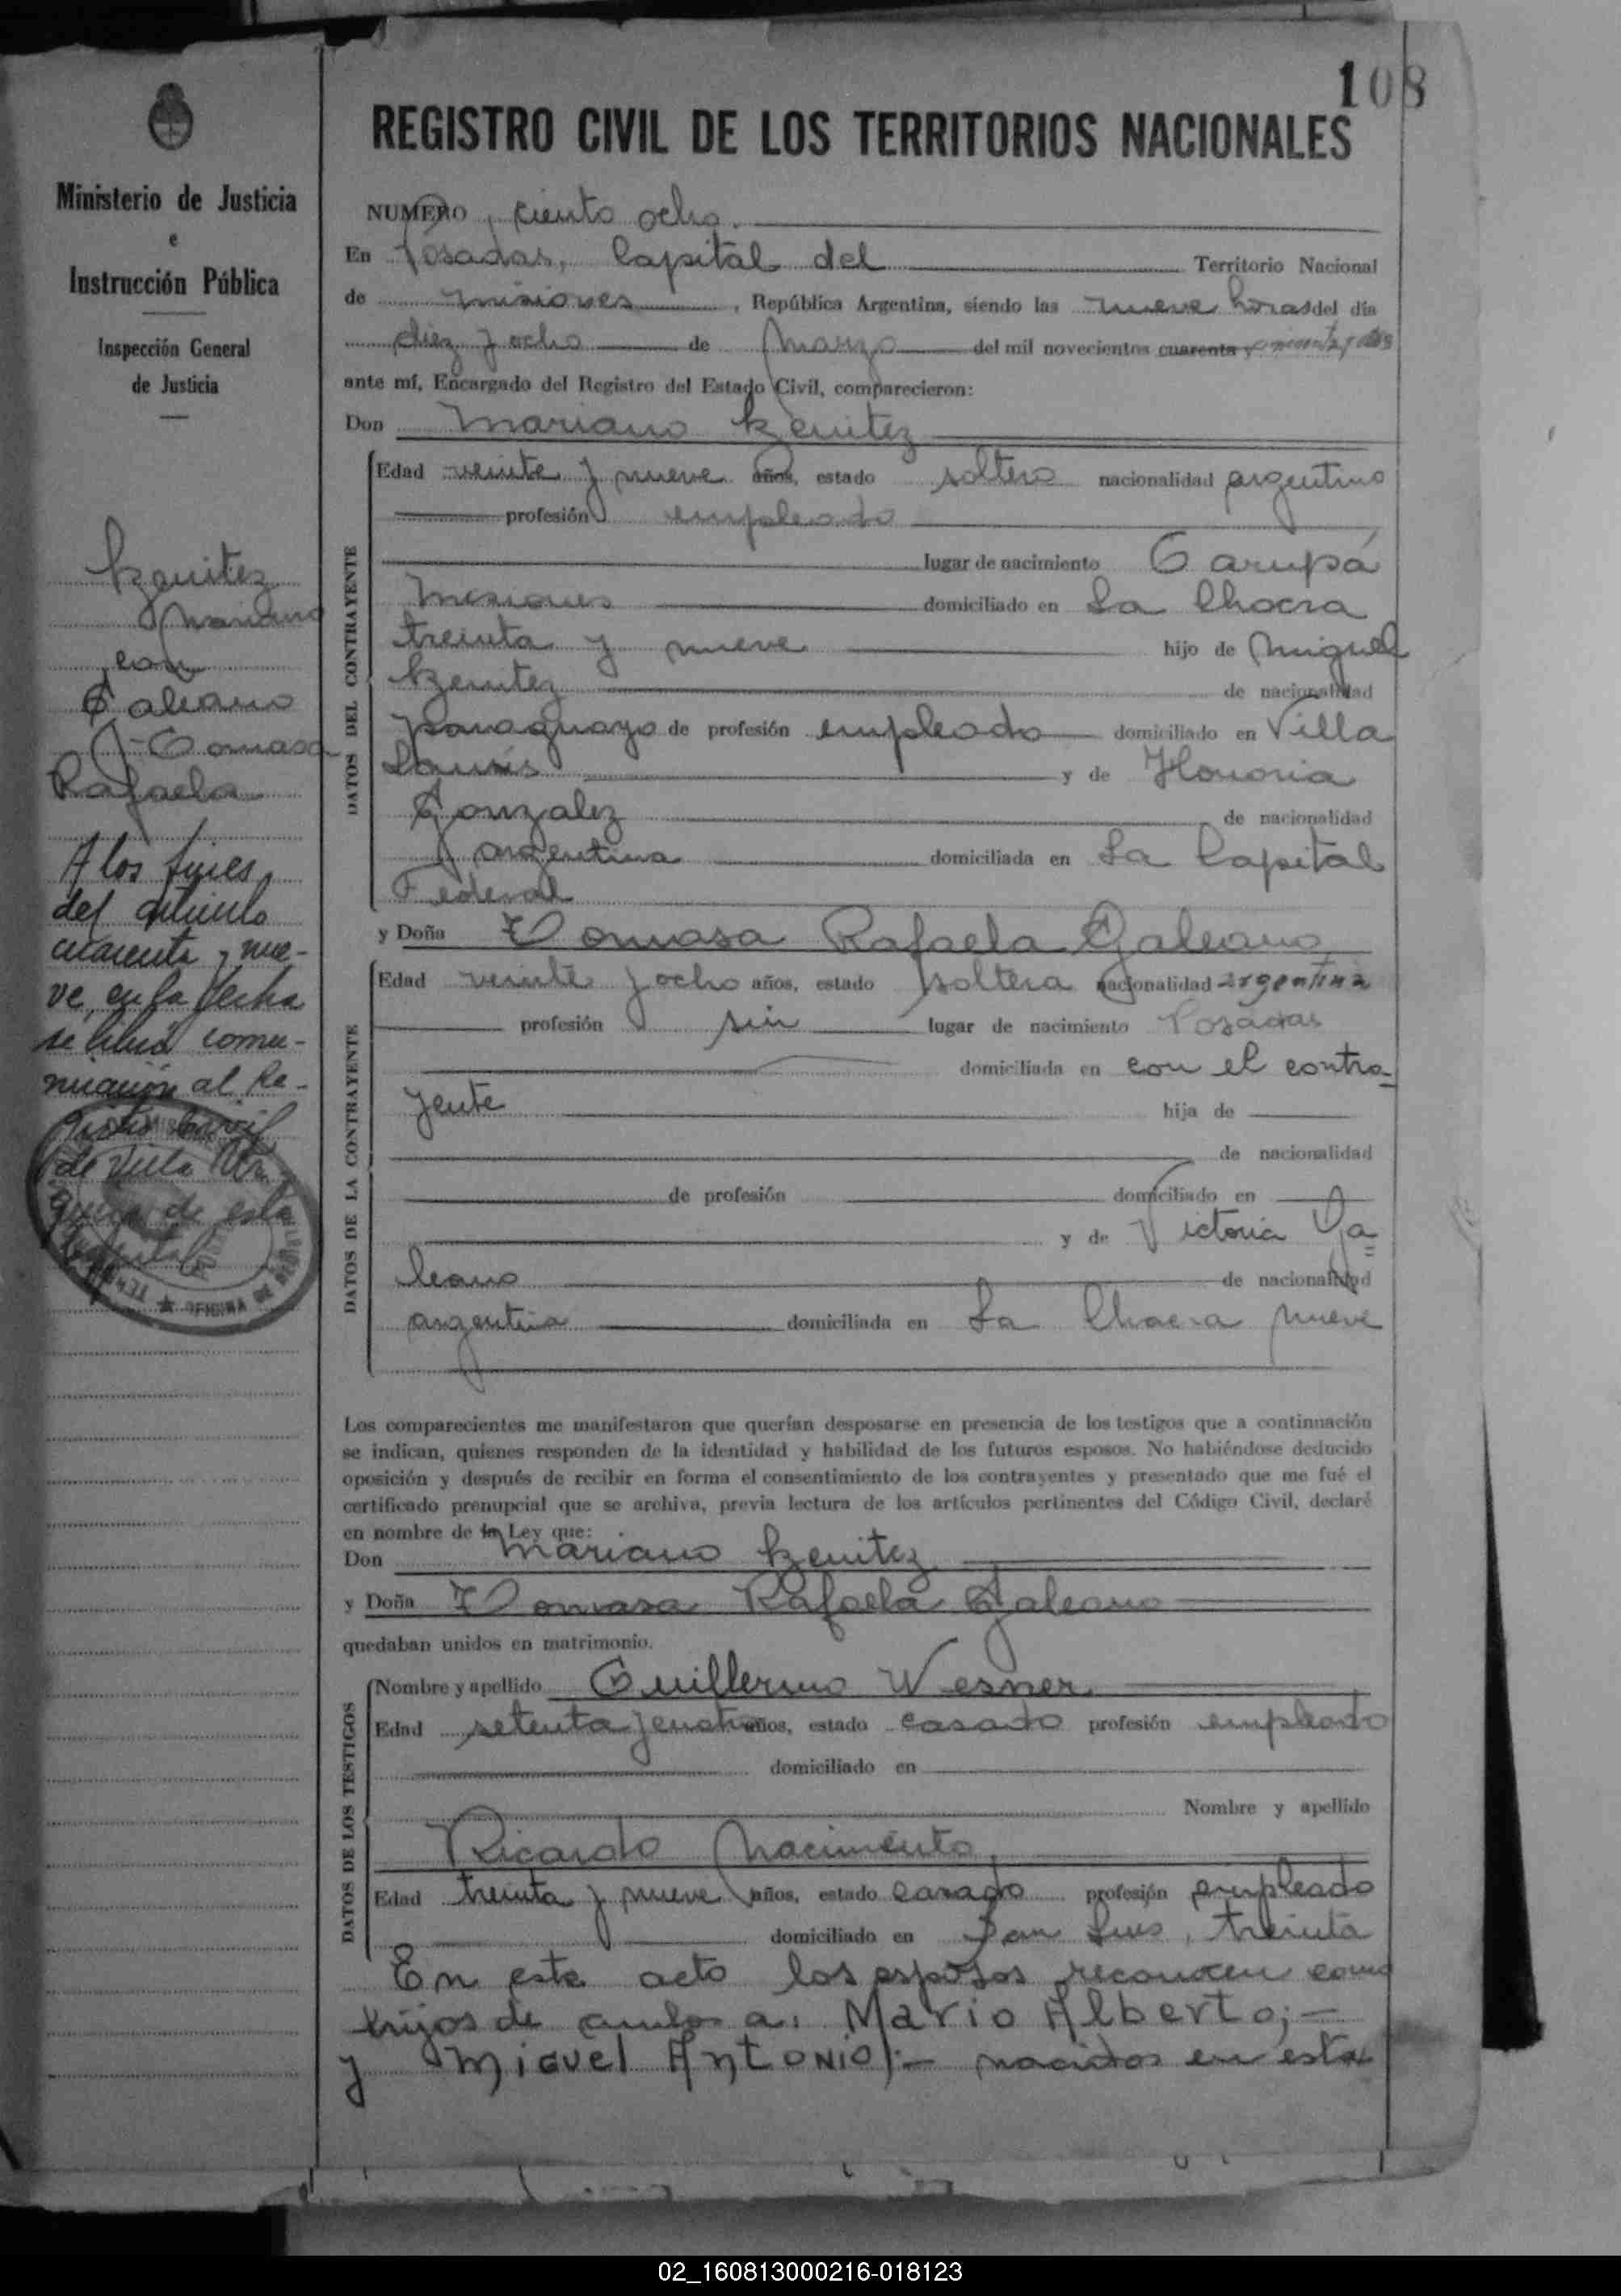 108
REGISTRO CIVIL DE LOS TERRITORIOS NACIONALES
Ministerio de Justicia
e
Instrucción Pública
Inspección General
de Justicia
Benitez
Mariano
con
Galeano
Tomasa
Rafaela
A los fines
del artículo
cuarenta y nue-
ve, en la fecha
se libró comu-
nicación al Re-
gistro Civil
de Villa Ur
quiza de esta
Capital
NUMERO, ciento ocho.
En Posadas, Capital del Territorio Nacional
de Misiones, República Argentina, siendo las nueve horas del día
diez y ocho de Marzo del mil novecientos cuarenta y
ante mí, Encargado del Registro del Estado Civil, comparecieron:
Don Mariano Benitez
DATOS DEL CONTRAYENTE
Edad veinte y nueve años, estado soltero nacionalidad argentino
profesión empleado
lugar de nacimiento Garupá
Misiones domiciliado en La Chacra
treinta y nueve hijo de Miguel
Benitez de nacionalidad
paraguayo de profesión empleado domiciliado en Villa
Lanús y de Honoria
Gonzalez de nacionalidad
argentina domiciliada en La Capital
Federal
y Doña Tomasa Rafaela Galeano
DATOS DE LA CONTRAYENTE
Edad veinte y ocho años, estado soltera nacionalidad argentina
profesión sin lugar de nacimiento Posadas
domiciliada en con el contra-
yente hija de
de nacionalidad
de profesión domiciliado en
y de Victoria Ga=
leano de nacionalidad
argentina domiciliada en La Chacra nueve
Los comparecientes me manifestaron que querían desposarse en presencia de los testigos que a continuación
se indican, quienes responden de la identidad y habilidad de los futuros esposos. No habiéndose deducido
oposición y después de recibir en forma el consentimiento de los contrayentes y presentado que me fué el
certificado prenupcial que se archiva, previa lectura de los artículos pertinentes del Código Civil, declaré
en nombre de la Ley que:
Don Mariano Benitez
y Doña Tomasa Rafaela Galeano
quedaban unidos en matrimonio.
DATOS DE LOS TESTIGOS
Nombre y apellido Guillermo Wesner
Edad setenta y cuatro años, estado casado profesión empleado
domiciliado en
Nombre y apellido
Ricardo Nacimiento
Edad treinta y nueve años, estado casado profesión empleado
domiciliado en San Luis, treinta
En este acto los esposos reconocen como
hijos de ambos a: Mario Alberto;-
y Miguel Antonio;- nacidos en esta
02_160813000216-018123